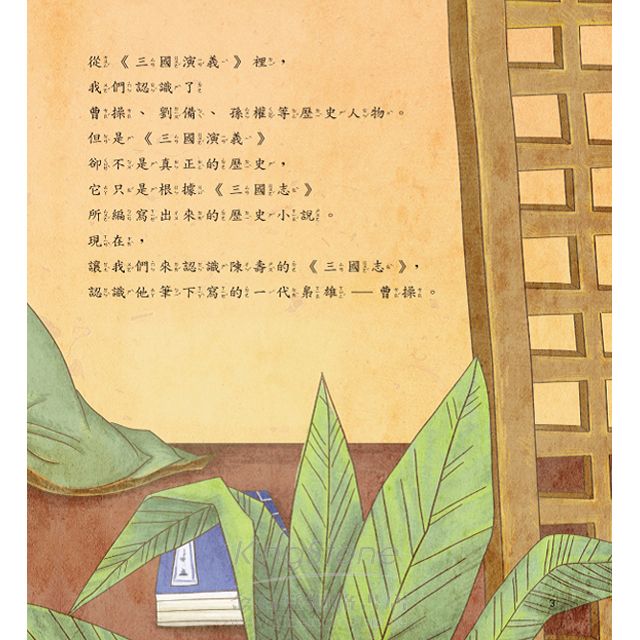 從《三國演義》裡，
我們認識了
曹操、劉備、孫權等歷史人物。
但是《三國演義》
卻不是真正的歷史，
它只是根據《三國志》
所編寫出來的歷史小說。
現在，
讓我們來認識陳壽的《三國志》，
認識他筆下寫的一代梟雄──曹操。
3